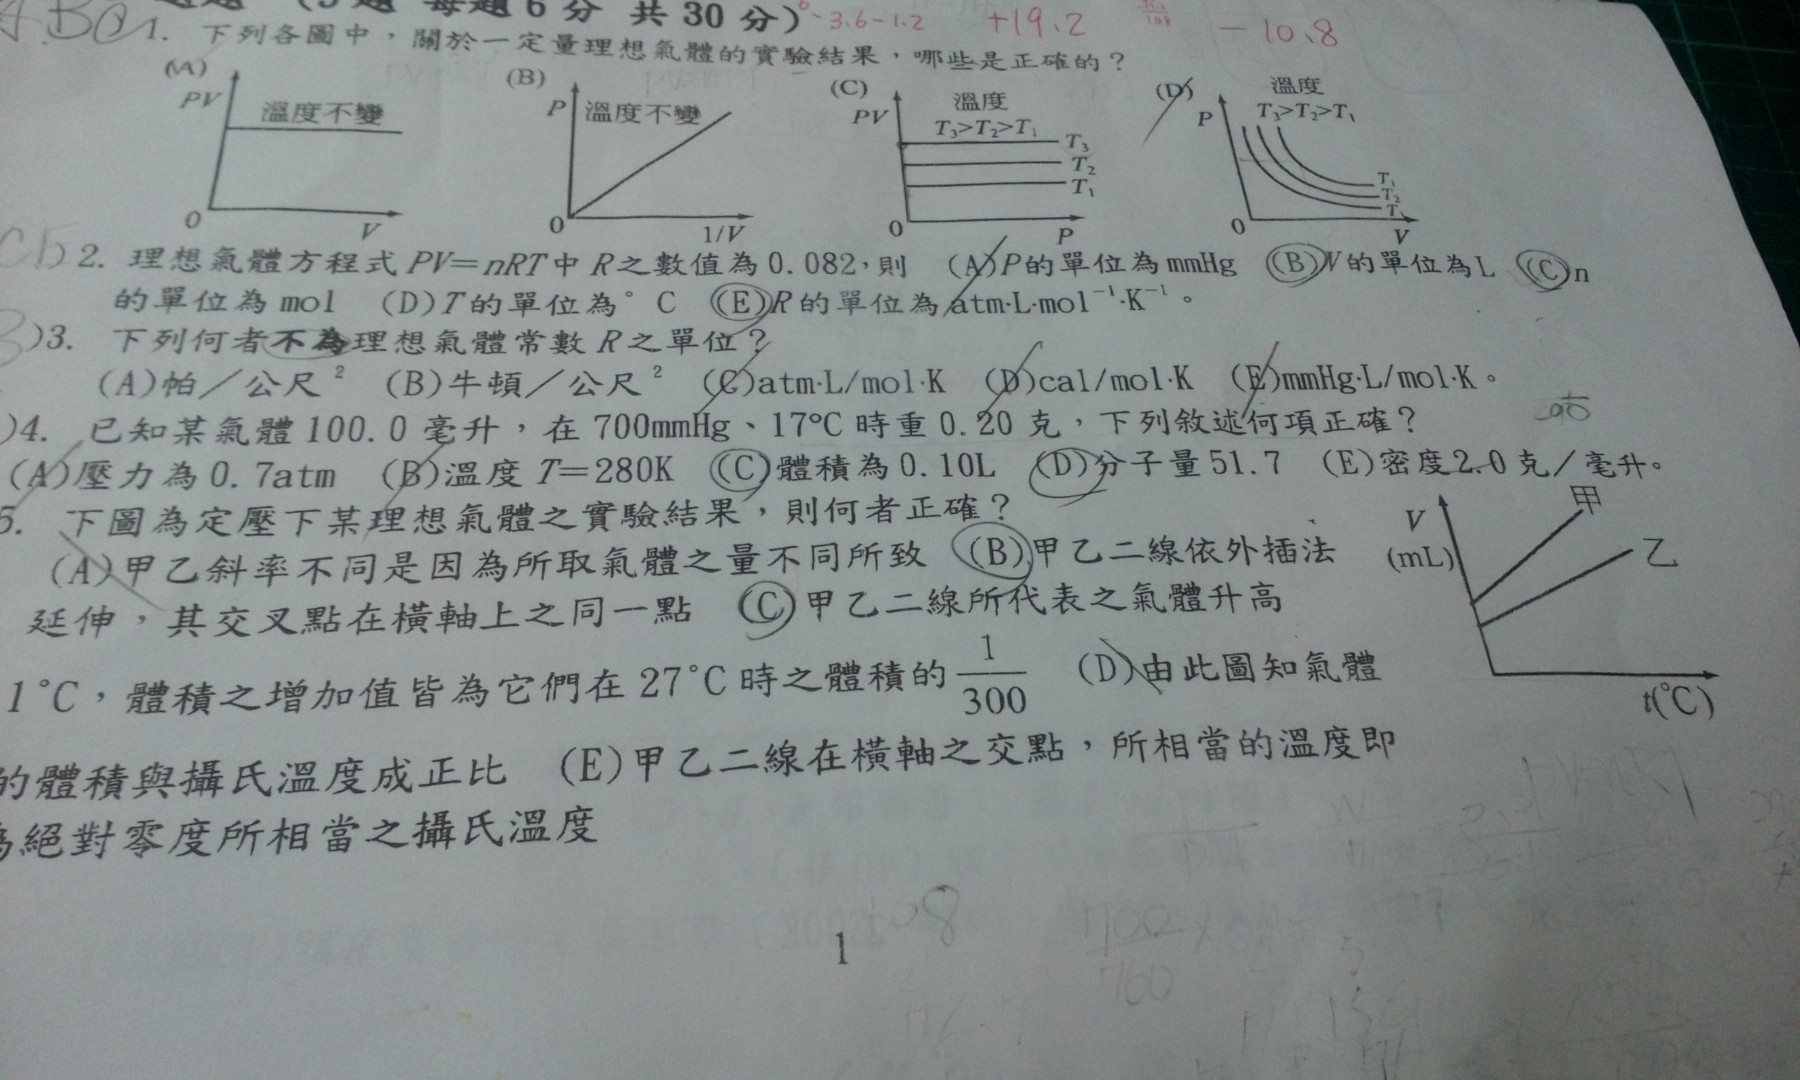 題 (5題 每題6分 共30分) -3.6-1.2 +19.2 -10.8
1. 下列各圖中，關於一定量理想氣體的實驗結果，哪些是正確的？
(A) PV 溫度不變 0 V
(B) P 溫度不變 0 1/V
(C) PV 溫度 T₃>T₂>T₁ T₃ T₂ T₁ 0 P
(D) P 溫度 T₃>T₂>T₁ T₁ T₂ 0 V
2. 理想氣體方程式 PV=nRT中 R之數值為0.082，則 (A)P的單位為mmHg (B)V的單位為L (C)n
的單位為mol (D)T的單位為°C (E)R的單位為atm·L·mol⁻¹·K⁻¹。
)3. 下列何者不為理想氣體常數 R之單位？
(A)帕／公尺² (B)牛頓／公尺² (C)atm·L/mol·K (D)cal/mol·K (E)mmHg·L/mol·K。
)4. 已知某氣體100.0毫升，在700mmHg、17℃時重0.20克，下列敘述何項正確？
(A)壓力為0.7atm (B)溫度 T=280K (C)體積為0.10L (D)分子量51.7 (E)密度2.0克／毫升。
5. 下圖為定壓下某理想氣體之實驗結果，則何者正確？
(A)甲乙斜率不同是因為所取氣體之量不同所致 (B)甲乙二線依外插法
延伸，其交叉點在橫軸上之同一點 (C)甲乙二線所代表之氣體升高
1°C，體積之增加值皆為它們在27°C時之體積的 1/300 (D)由此圖知氣體
的體積與攝氏溫度成正比 (E)甲乙二線在橫軸之交點，所相當的溫度即
為絕對零度所相當之攝氏溫度
V (mL) 甲 乙 t(°C)
1